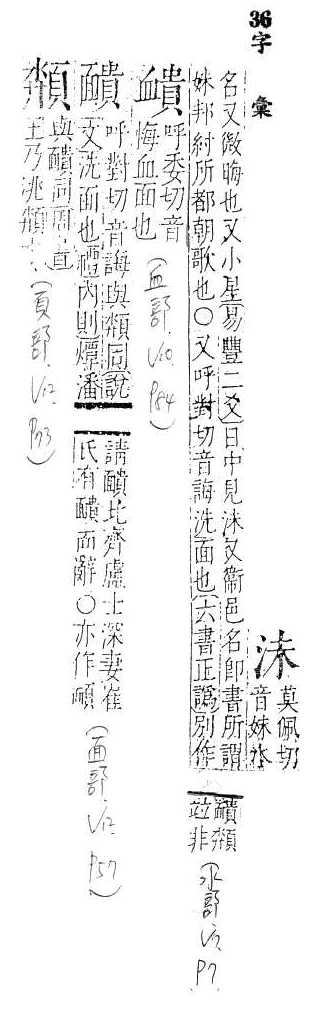 36字彙
沬
莫佩切
音妹水
名又微晦也又小星易豐二爻日中見沬又衞邑名卽書所謂
妹邦紂所都朝歌也○又呼對切音誨洗面也六書正譌別作
靧頮
竝非
(水部、V7 P7)
呼委切音
悔血面也
(血部、V10 P84)
靧
呼對切音誨與頮同說
文洗面也禮內則燂潘
請靧北齊盧士深妻崔
氏有靧面辭○亦作
(面部、V12 P57)
頮
與靧同周書
王乃洮頮
(頁部、V12 P73)